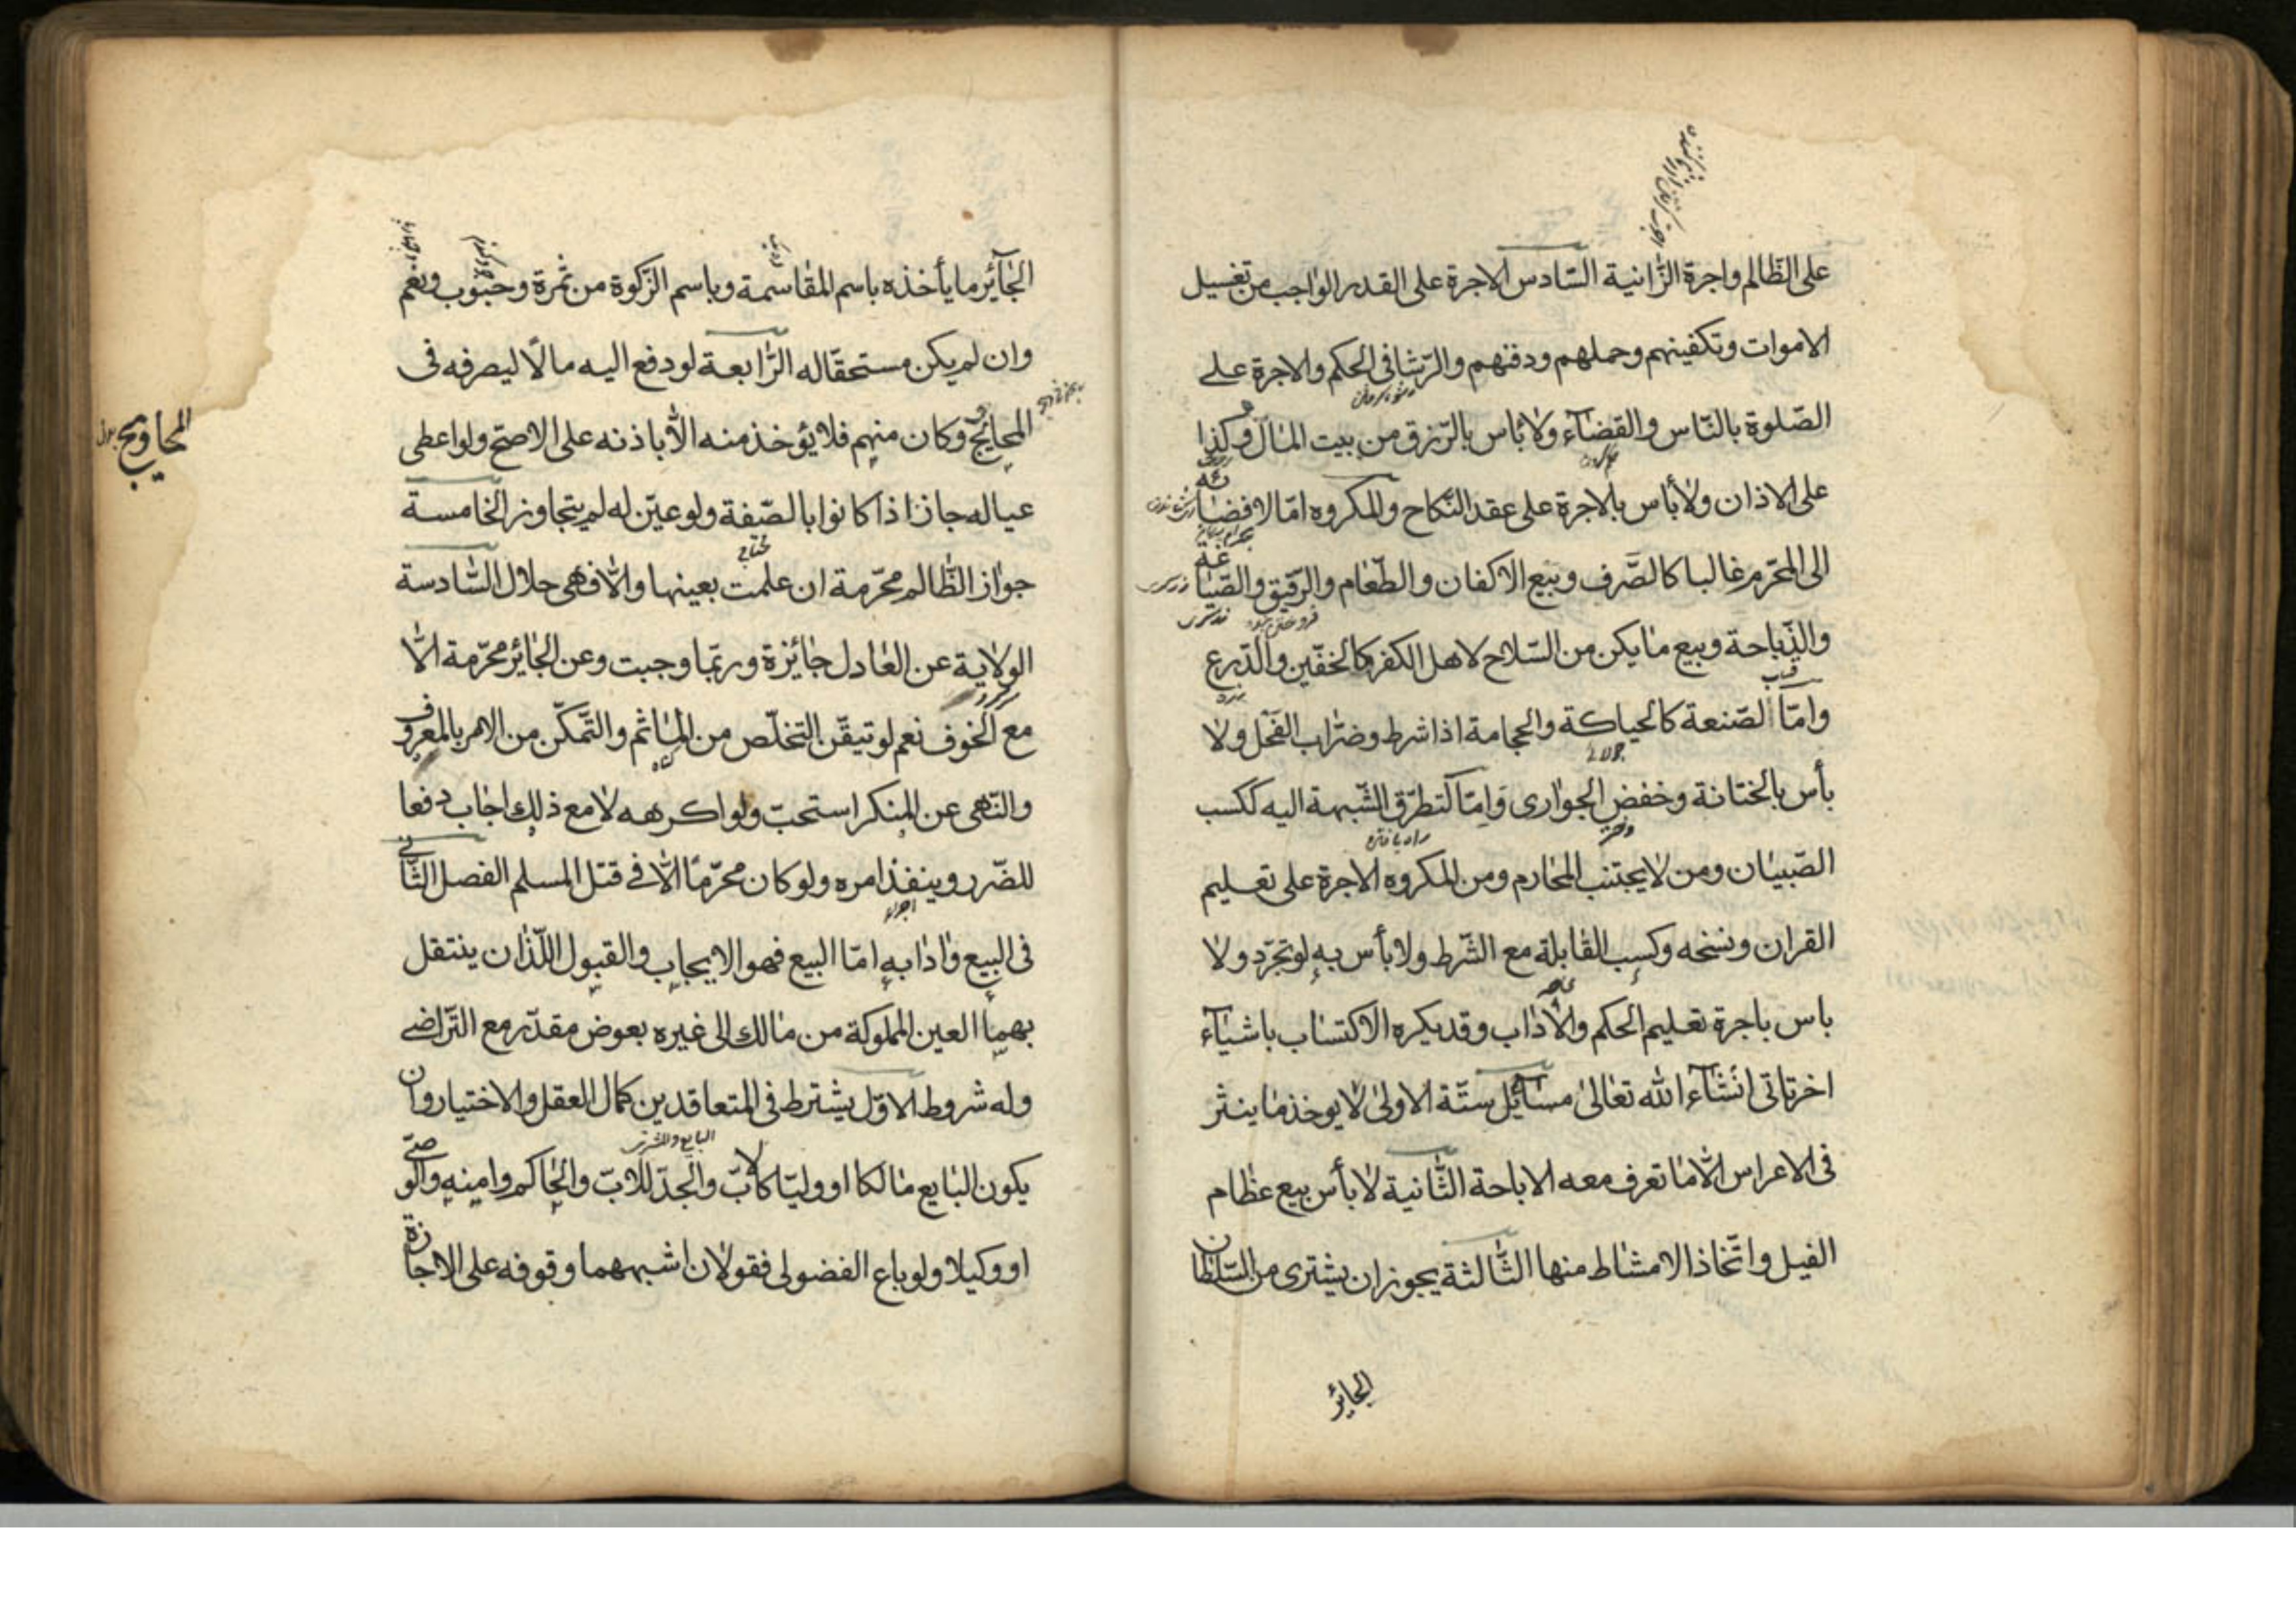 على الظالم واجرة الزانية السادس الاجرة على القدر الواجب من تغسيل
الاموات وتكفينهم وحملهم ودفنهم والرشا فى الحكم والاجرة على
الصلوة بالناس والقضاء ولا باس بالرزق من بيت المال وكذا
على الاذان ولا بأس بالاجرة على عقد النكاح والمكروه امّا لافضائه
الى المحرّم غالبا كالصّرف وبيع الاكفان والطّعام والرّقيق والصّياغة
والذّباحة وبيع ما يكن من السّلاح لاهل الكفر كالخفّين والدّرع
وامّا الصّنعة كالحياكة والحجامة اذا شرط وضراب الفحل ولا
بأس بالختانة وخفض الجوارى وامّا لتطرّق الشّبهة اليه ككسب
الصّبيان ومن لا يجتنب المحارم ومن المكروه الاجرة على تعليم
القران ونسخه وكسب القابلة مع الشّرط ولا بأس به لو تجرّد ولا
باس باجرة تعليم الحكم والاداب وقد يكره الاكتساب باشياء
اخر تاتى انشاء الله تعالى مسائل ستّة الاولى لا يوخذ ما ينثر
فى الاعراس الّا ما تعرف معه الاباحة الثّانية لا بأس ببيع عظام
الفيل واتّخاذ الامشاط منها الثّالثة يجوز ان يشترى من السّلطان
الجائر
الجآئر ما يأخذه باسم المقاسمة وباسم الزّكوة من ثمرة وحبوب ونعم
وان لم يكن مستحقّا له الرّابعة لو دفع اليه مالًا ليصرفه فى
المحايج وكان منهم فلا يؤخذ منه الّا باذنه على الاصحّ ولو اعطى
المحاويج بدل
عياله جاز اذا كانوا بالصّفة ولو عيّن له لم يتجاوز الخامسة
جوائز الظّالم محرّمة ان علمت بعينها والّا فهى حلال السّادسة
الولاية عن العادل جائزة وربّما وجبت وعن الجائر محرّمة الّا
مع الخوف نعم لو تيقّن التخلّص من المآثم والتّمكّن من الامر بالمعروف
والنّهى عن المنكر استحبّ ولو اكرهه لا مع ذلك اجاب دفعا
للضّرر وينفذ امره ولو كان محرّمًا الّا فى قتل المسلم الفصل الثّانى
فى البيع وادابه امّا البيع فهو الايجاب والقبول اللّذان ينتقل
بهما العين المملوكة من مالك الى غيره بعوض مقدّر مع التّراضى
وله شروط الاوّل يشترط فى المتعاقدين كمال العقل والاختيار وان
البايع والمشترى
يكون البايع مالكا او وليّا كالابّ والجدّ للابّ والحاكم وامينه والوصىّ
او وكيلا ولو باع الفضولى فقولان اشبههما وقوفه على الاجازة